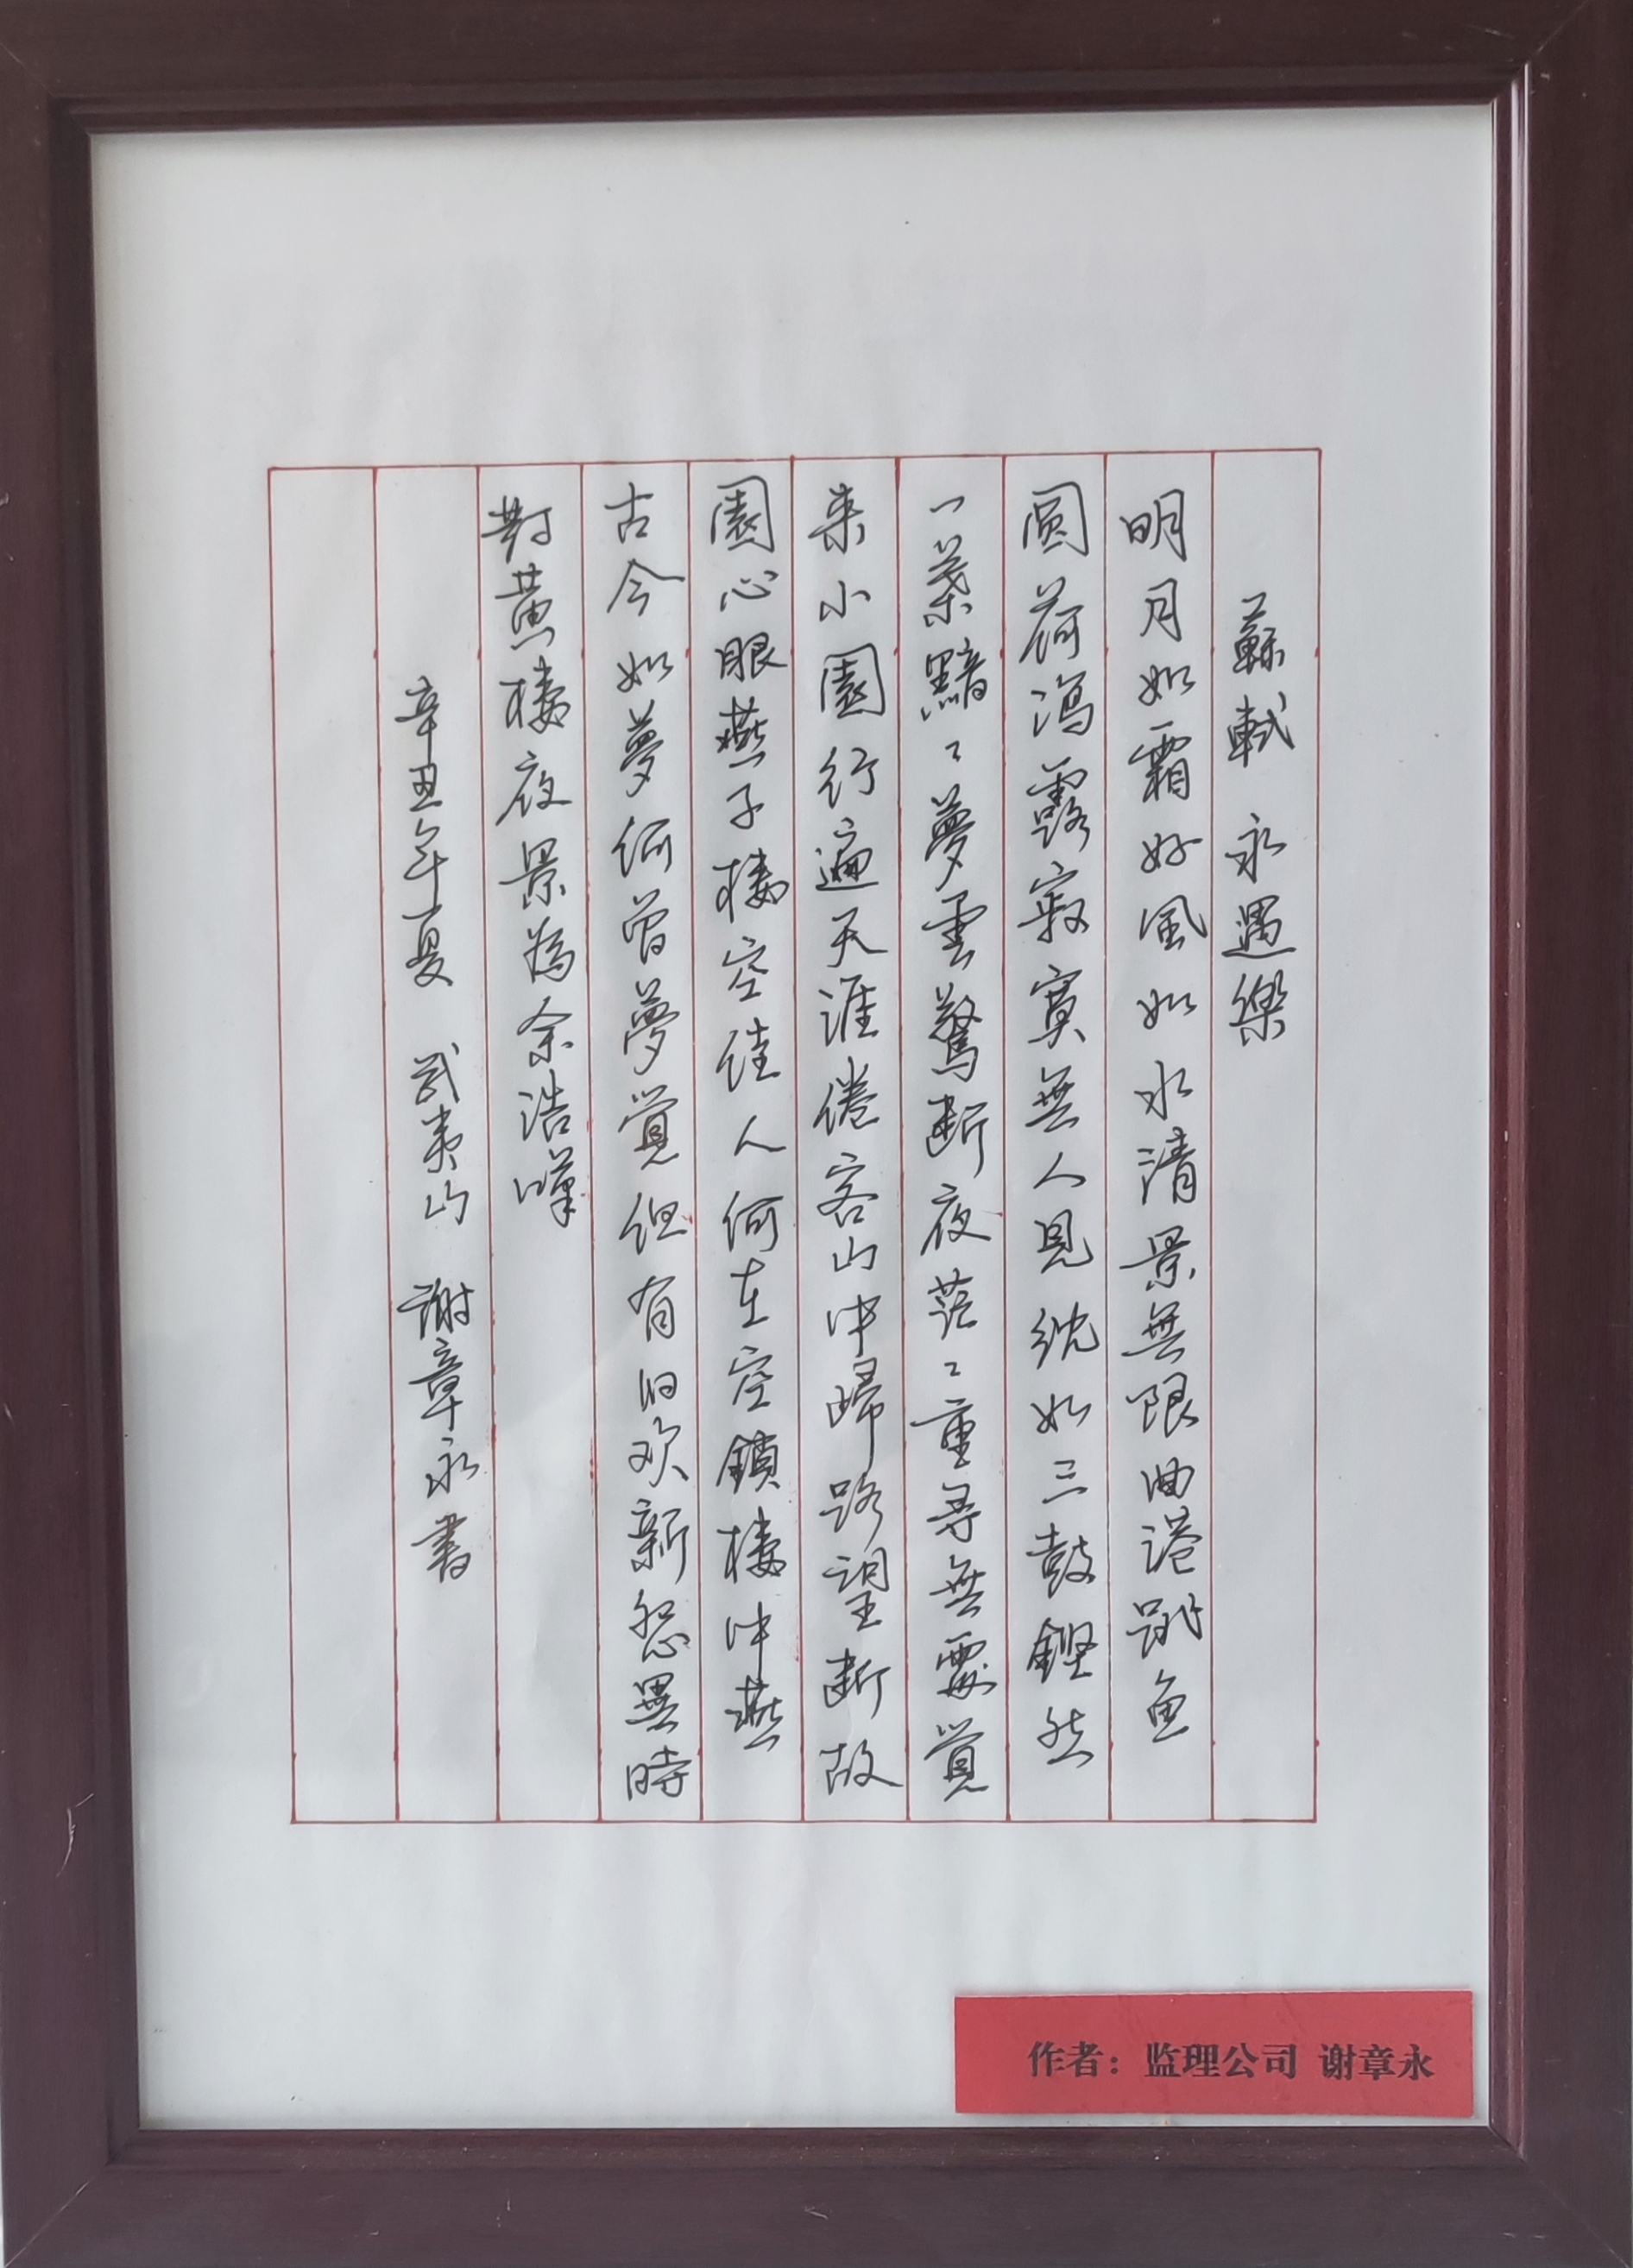 蘇軾 永遇樂
明月如霜好風如水清景無限曲港跳魚
圓荷瀉露寂寞無人見紞如三鼓鏗然
一葉黯〻夢雲驚斷夜茫〻重尋無處覺
來小園行遍天涯倦客山中歸路望斷故
園心眼燕子樓空佳人何在空鎖樓中燕
古今如夢何曾夢覺但有旧欢新怨異時
對黃樓夜景為余浩嘆
辛丑年夏 武夷山 謝章永書
作者：监理公司 谢章永